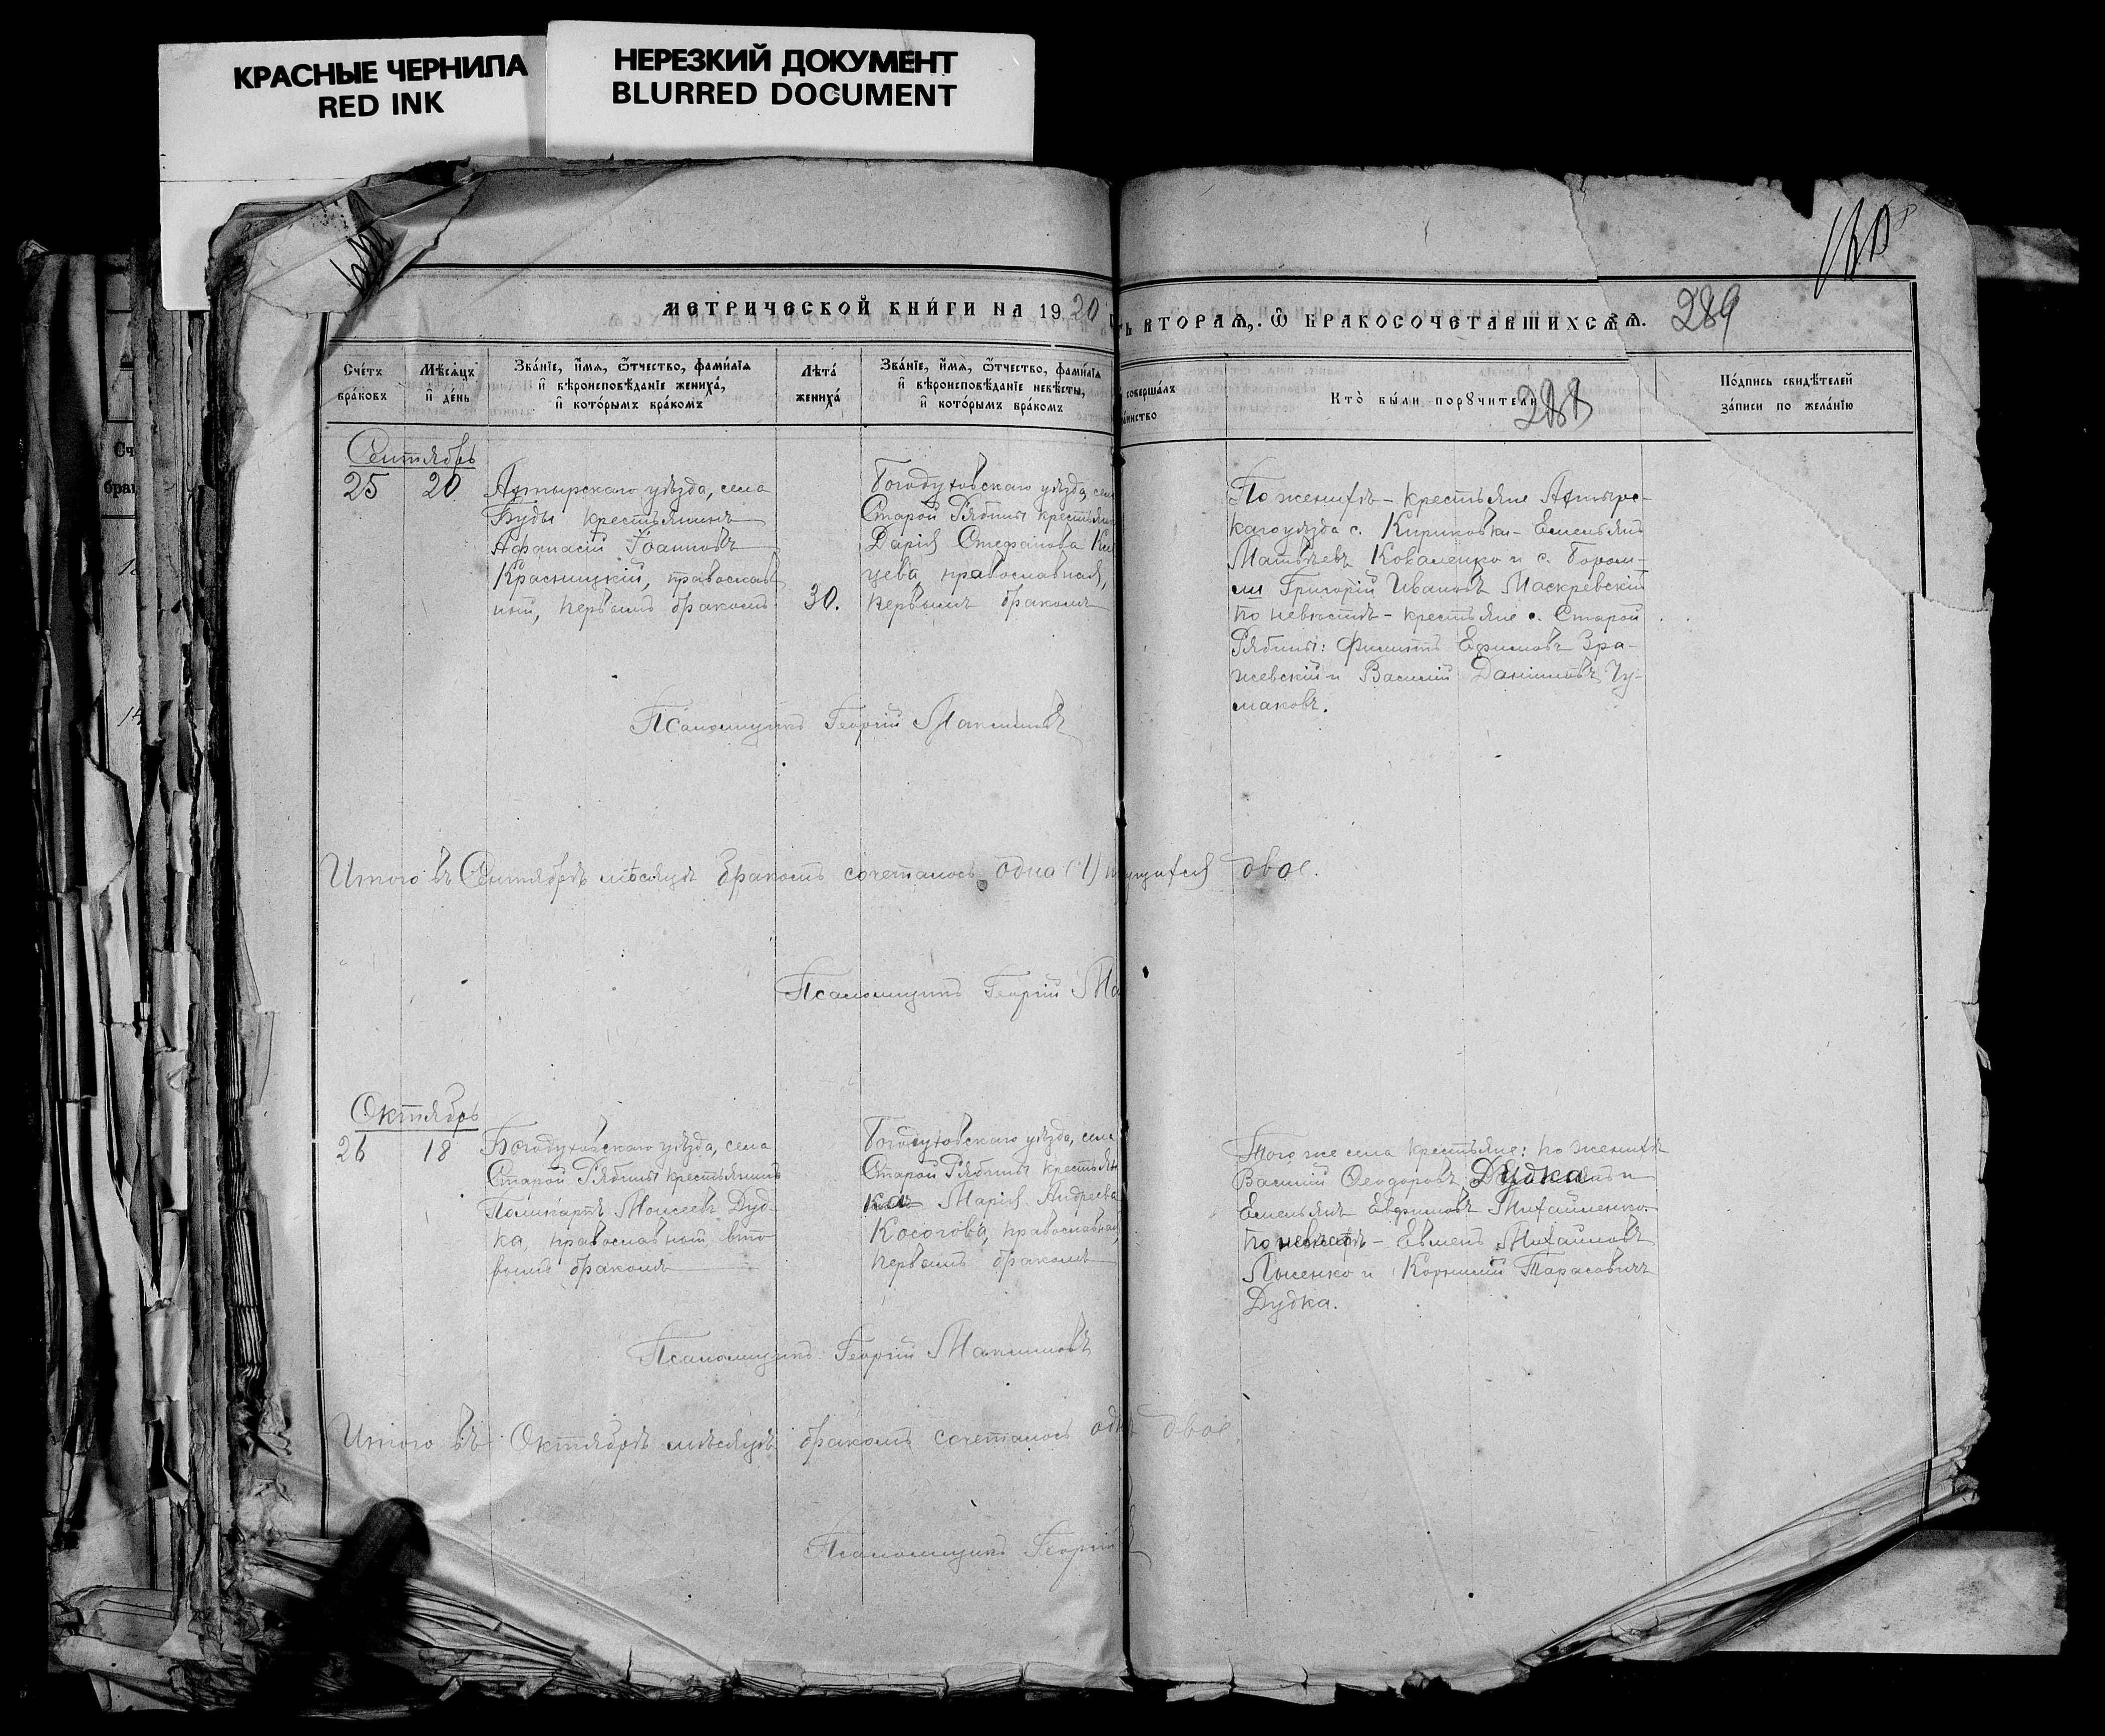 КРАСНЫЕ ЧЕРНИЛА
RED INK
НЕРЕЗКИЙ ДОКУМЕНТ
BLURRED DOCUMENT
МЕТРИЧЕСКОЙ КНИ́ГИ НА 1920
ВТОРАѦ, Ѿ БРАКОСОЧЕТАВШИХСѦ.
289
288
Сче́тъ бра́ковъ
Мѣ́сѧцъ и҆ де́нь
Зва́нїе, и҆́мѧ, ѻ҆́тчество, фами́лїѧ и҆ вѣроисповѣ́данїе жениха́, и҆ кото́рымъ бра́комъ
Лѣта́ жениха́
Зва́нїе, и҆́мѧ, ѻ҆́тчество, фами́лїѧ и҆ вѣроисповѣ́данїе невѣ́сты, и҆ кото́рымъ бра́комъ
соверша́лъ
Кто̀ бы́ли порꙋчи́тели
По́дпись свидѣ́телей за́писи по жела́нїю
Сентябрь
25
20
Ахтырскаго уѣзда, села
Буды крестьянинъ
Афанасій Іоанновъ
Красницкій, православ
ный, первымъ бракомъ
30.
Богодуховскаго уѣзда, села
Старой Рябины крестьян
Дарія Стефанова
цева, православная,
первымъ бракомъ
По женихѣ – крестьяне Ахтырс-
каго уѣзда с. Кириковки – Емельянъ
Матвѣевъ Коваленко и с. Бором
ли Григорій Ивановъ
по невѣстѣ – крестьяне с. Старой
Рябины: Филиппъ Ефимовъ Зра-
жевскій и Василій Даниловъ Чу-
маковъ.
Псаломщикъ Георгій Максимовъ
Итого въ Сентябрѣ мѣсяцѣ бракомъ сочеталось одна (1) двое.
Псаломщикъ Георгій Ма
Октябрь
26
18
Богодуховскаго уѣзда, села
Старой Рябины крестьянинъ
Поликарпъ Моисеевъ Дуд-
ка, православный, вто
рымъ бракомъ
Богодуховскаго уѣзда, села
Старой Рябины крестьян
ка Марія Андреева
Косогова, православная,
первымъ бракомъ
Того же села крестьяне: по женихѣ
Василій Феодоровъ Дудка и
Емельянъ Евфимовъ Михайленко.
по невѣстѣ – Евмент Михаиловъ
Лысенко и Корнилій Тарасовичъ
Дудка.
Псаломщикъ Георгій Максимовъ
Итого въ Октябрѣ мѣсяцѣ бракомъ сочеталось двое.
Псаломщикъ Георгій